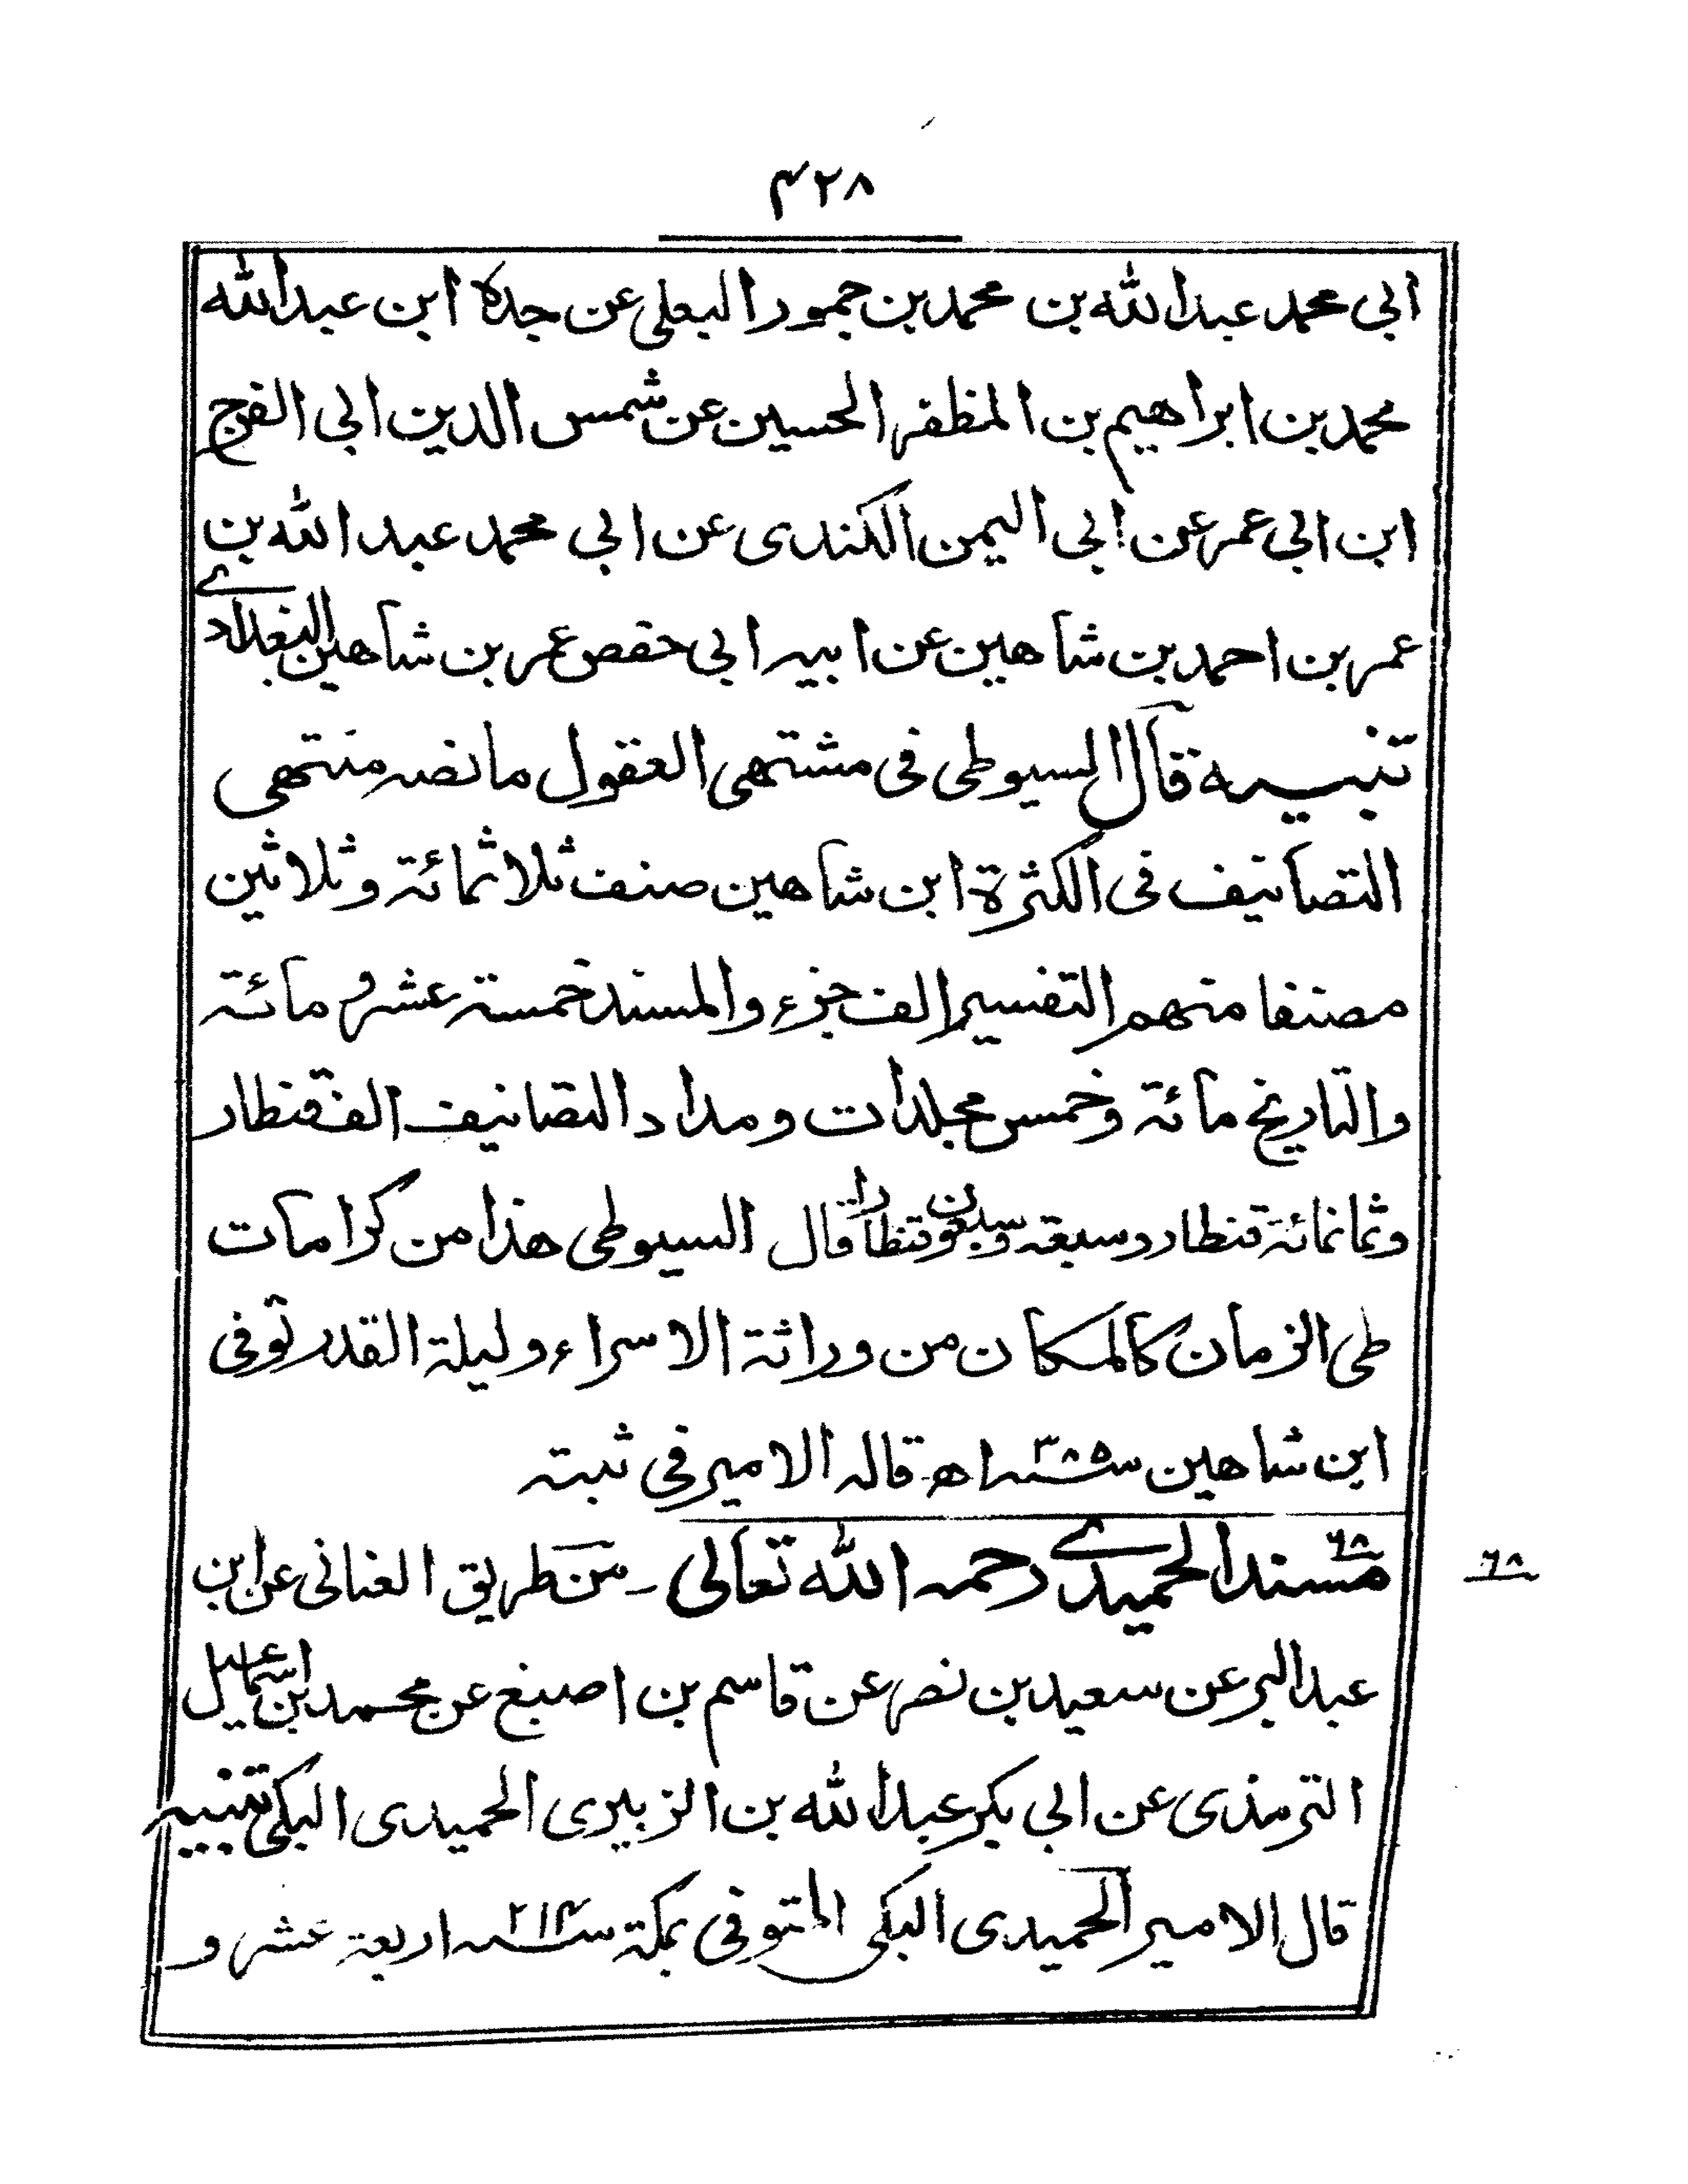 ۴۲۸
ابي محمد عبدالله بن محمد بن جمور البعلي عن جده ابن عبدالله
محمد بن ابراهيم بن المظفر الحسين عن شمس الدين ابي الفرج
ابن ابي عمر عن ابي اليمن الكندى عن ابي محمد عبد الله بن
عمر بن احمد بن شاهين عن ابيه ابي حفص عمر بن شاهين البغدادے
تنبيه قال السيوطى فى مشتهى العقول ما نصه منتهى
التصانيف فى الكثرة ابن شاهين صنف ثلاثمائة وثلاثين
مصنفا منهم التفسير الف جزء والمسند خمسة عشر و مائة
والتاريخ مائة وخمس مجلدات ومداد التصانيف الف قنطار
وثمانمائة قنطار وسبعة وسبعون قنطارا قال السيوطى هذا من كرامات
طى الزمان كالمكان من وراثة الاسراء وليلة القدر توفى
ابن شاهين سنة ۳۸۵ اه قاله الامير فى ثبته
۶۸
مسند الحميدے رحمه الله تعالى ـ من طريق الغسانى عن ابن
۶۸
عبدالبر عن سعيد بن نصر عن قاسم بن اصبغ عن محمد بن اسماعيل
الترمذى عن ابي بكر عبدالله بن الزبيرى الحميدى المكى تنبيه
قال الامير الحميدى المكى المتوفى بمكة سنة ۲۱۴ اربعة عشر و